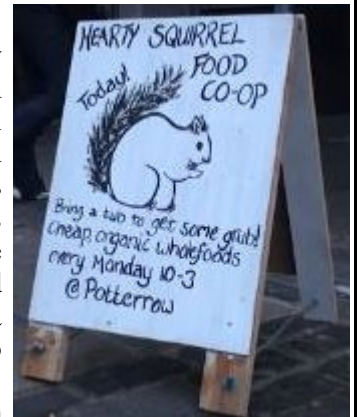 HEARTY SQUIRREL
FOOD
CO-OP
Today!
Bring a tub to get some grub!
cheap, organic wholefoods
every Monday 10-3
@ Potterrow